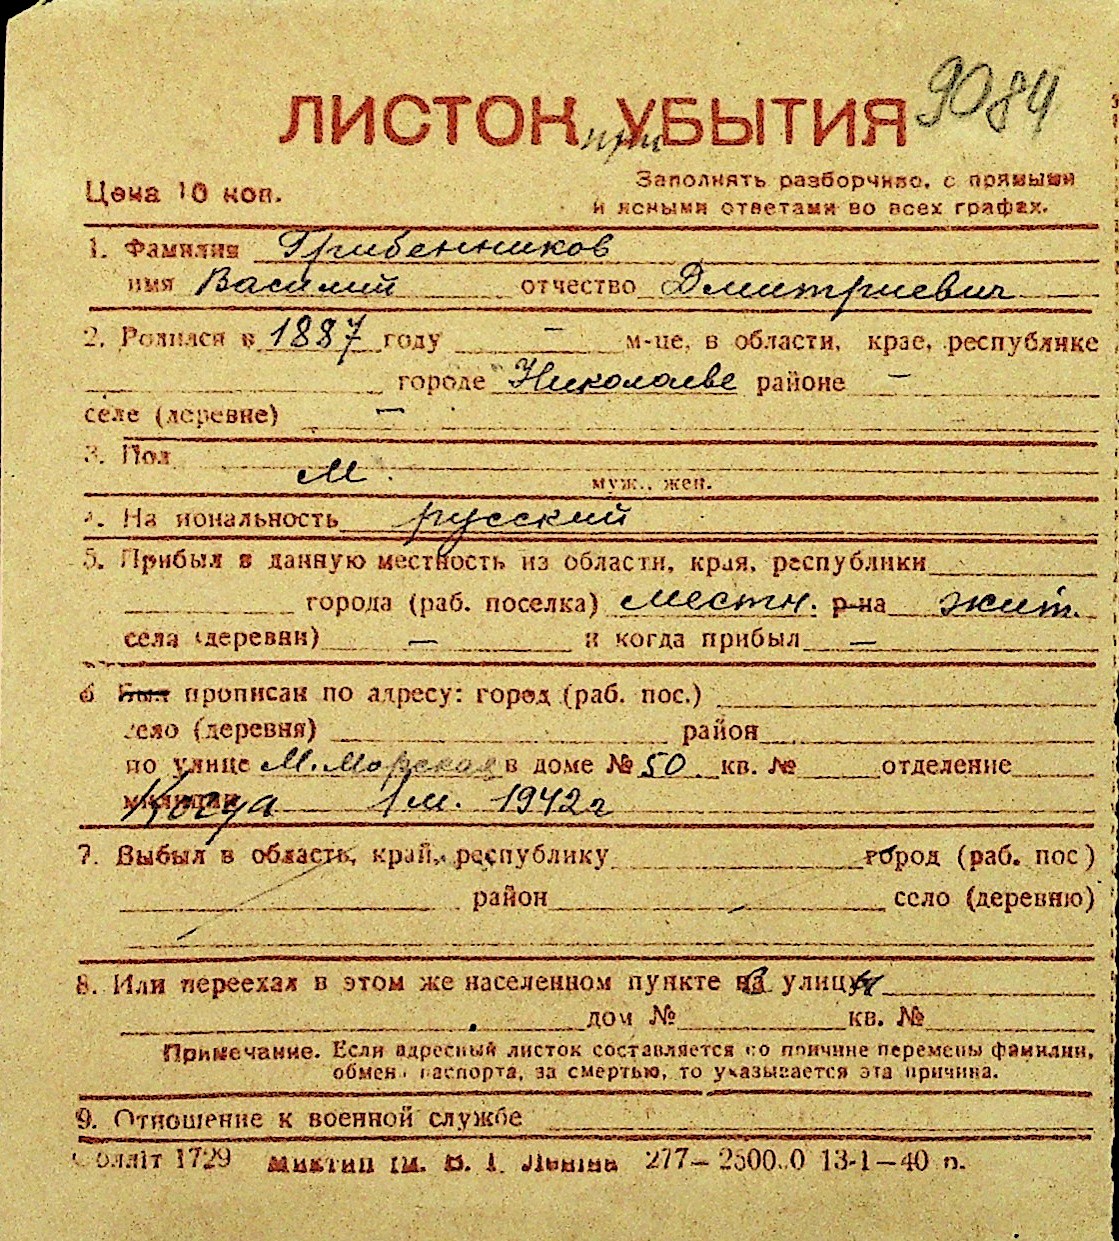 9084
ЛИСТОК при УБЫТИЯ
Цена 10 коп.
Заполнять разборчиво, с прямыми
и ясными ответами во всех графах.
1. Фамилия Грибенников
имя Василий отчество Дмитриевич
2. Родился в 1887 году — м-це, в области, крае, республике
городе Николаеве районе —
селе (деревне) —
3. Пол М.
муж., жен.
4. На иональность русский
5. Прибыл в данную местность из области, края, республики
города (раб. поселка) местн. р-на жит.
села (деревни) — и когда прибыл —
6 Был прописан по адресу: город (раб. пос.)
село (деревня) район
по улице М. Морская в доме № 50 кв. № отделение
милиции Когда 1 м. 1942 г
7. Выбыл в область, край, республику город (раб. пос)
район село (деревню)
8. Или переехал в этом же населенном пункте на улицу
дом № кв. №
Примечание. Если адресный листок составляется по причине перемены фамилии,
обмена паспорта, за смертью, то указывается эта причина.
9. Отношение к военной службе
Облліт 1729 Миктип ім. В. І. Леніна 277—2500.0 13-1—40 п.